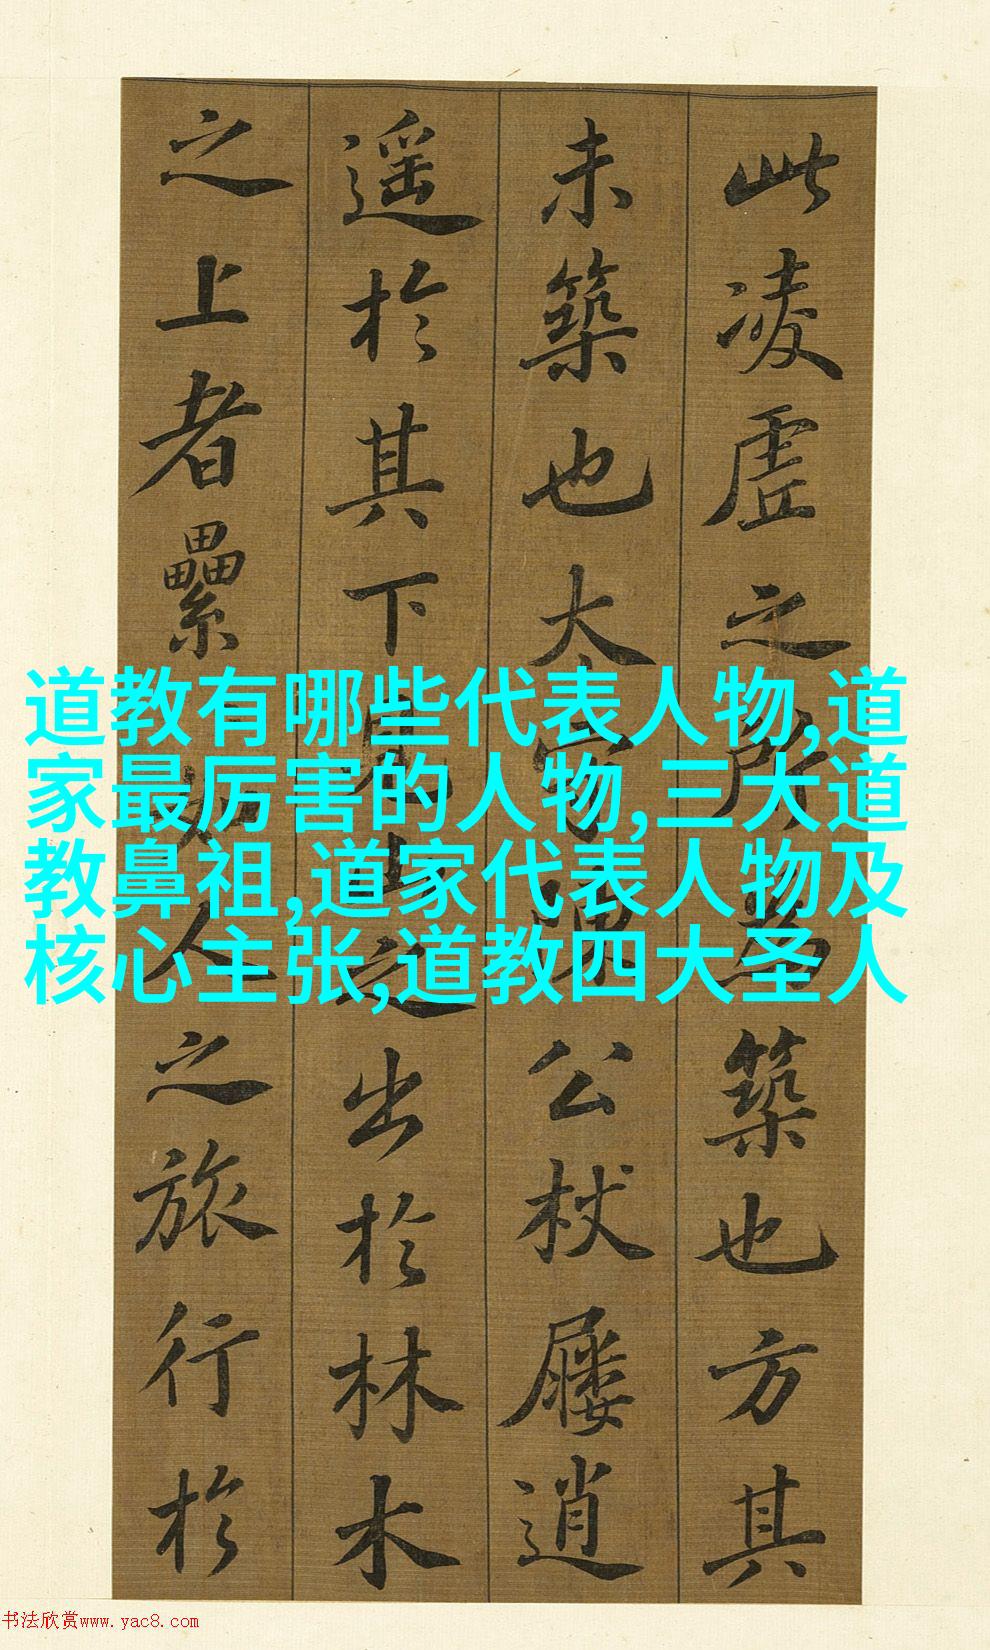 此凌虛之所為築也方其
未築也太守陳公杖屨逍
遥於其下見山之出於林木
之上者纍如人之旅行於
道教有哪些代表人物,道
家最厉害的人物,三大道
教鼻祖,道家代表人物及
核心主张,道教四大圣人
书法欣赏www.yac8.com